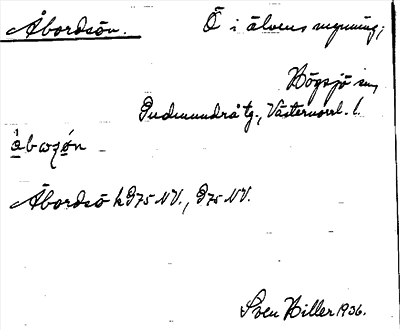 Åbordsön. Ö i älvens mynning;
Högsjö sn,
Gudmundrå tg., Västernorrl. l.
Åbordsö k 975 NV., 975 NV.
Sven Hiller 1936.